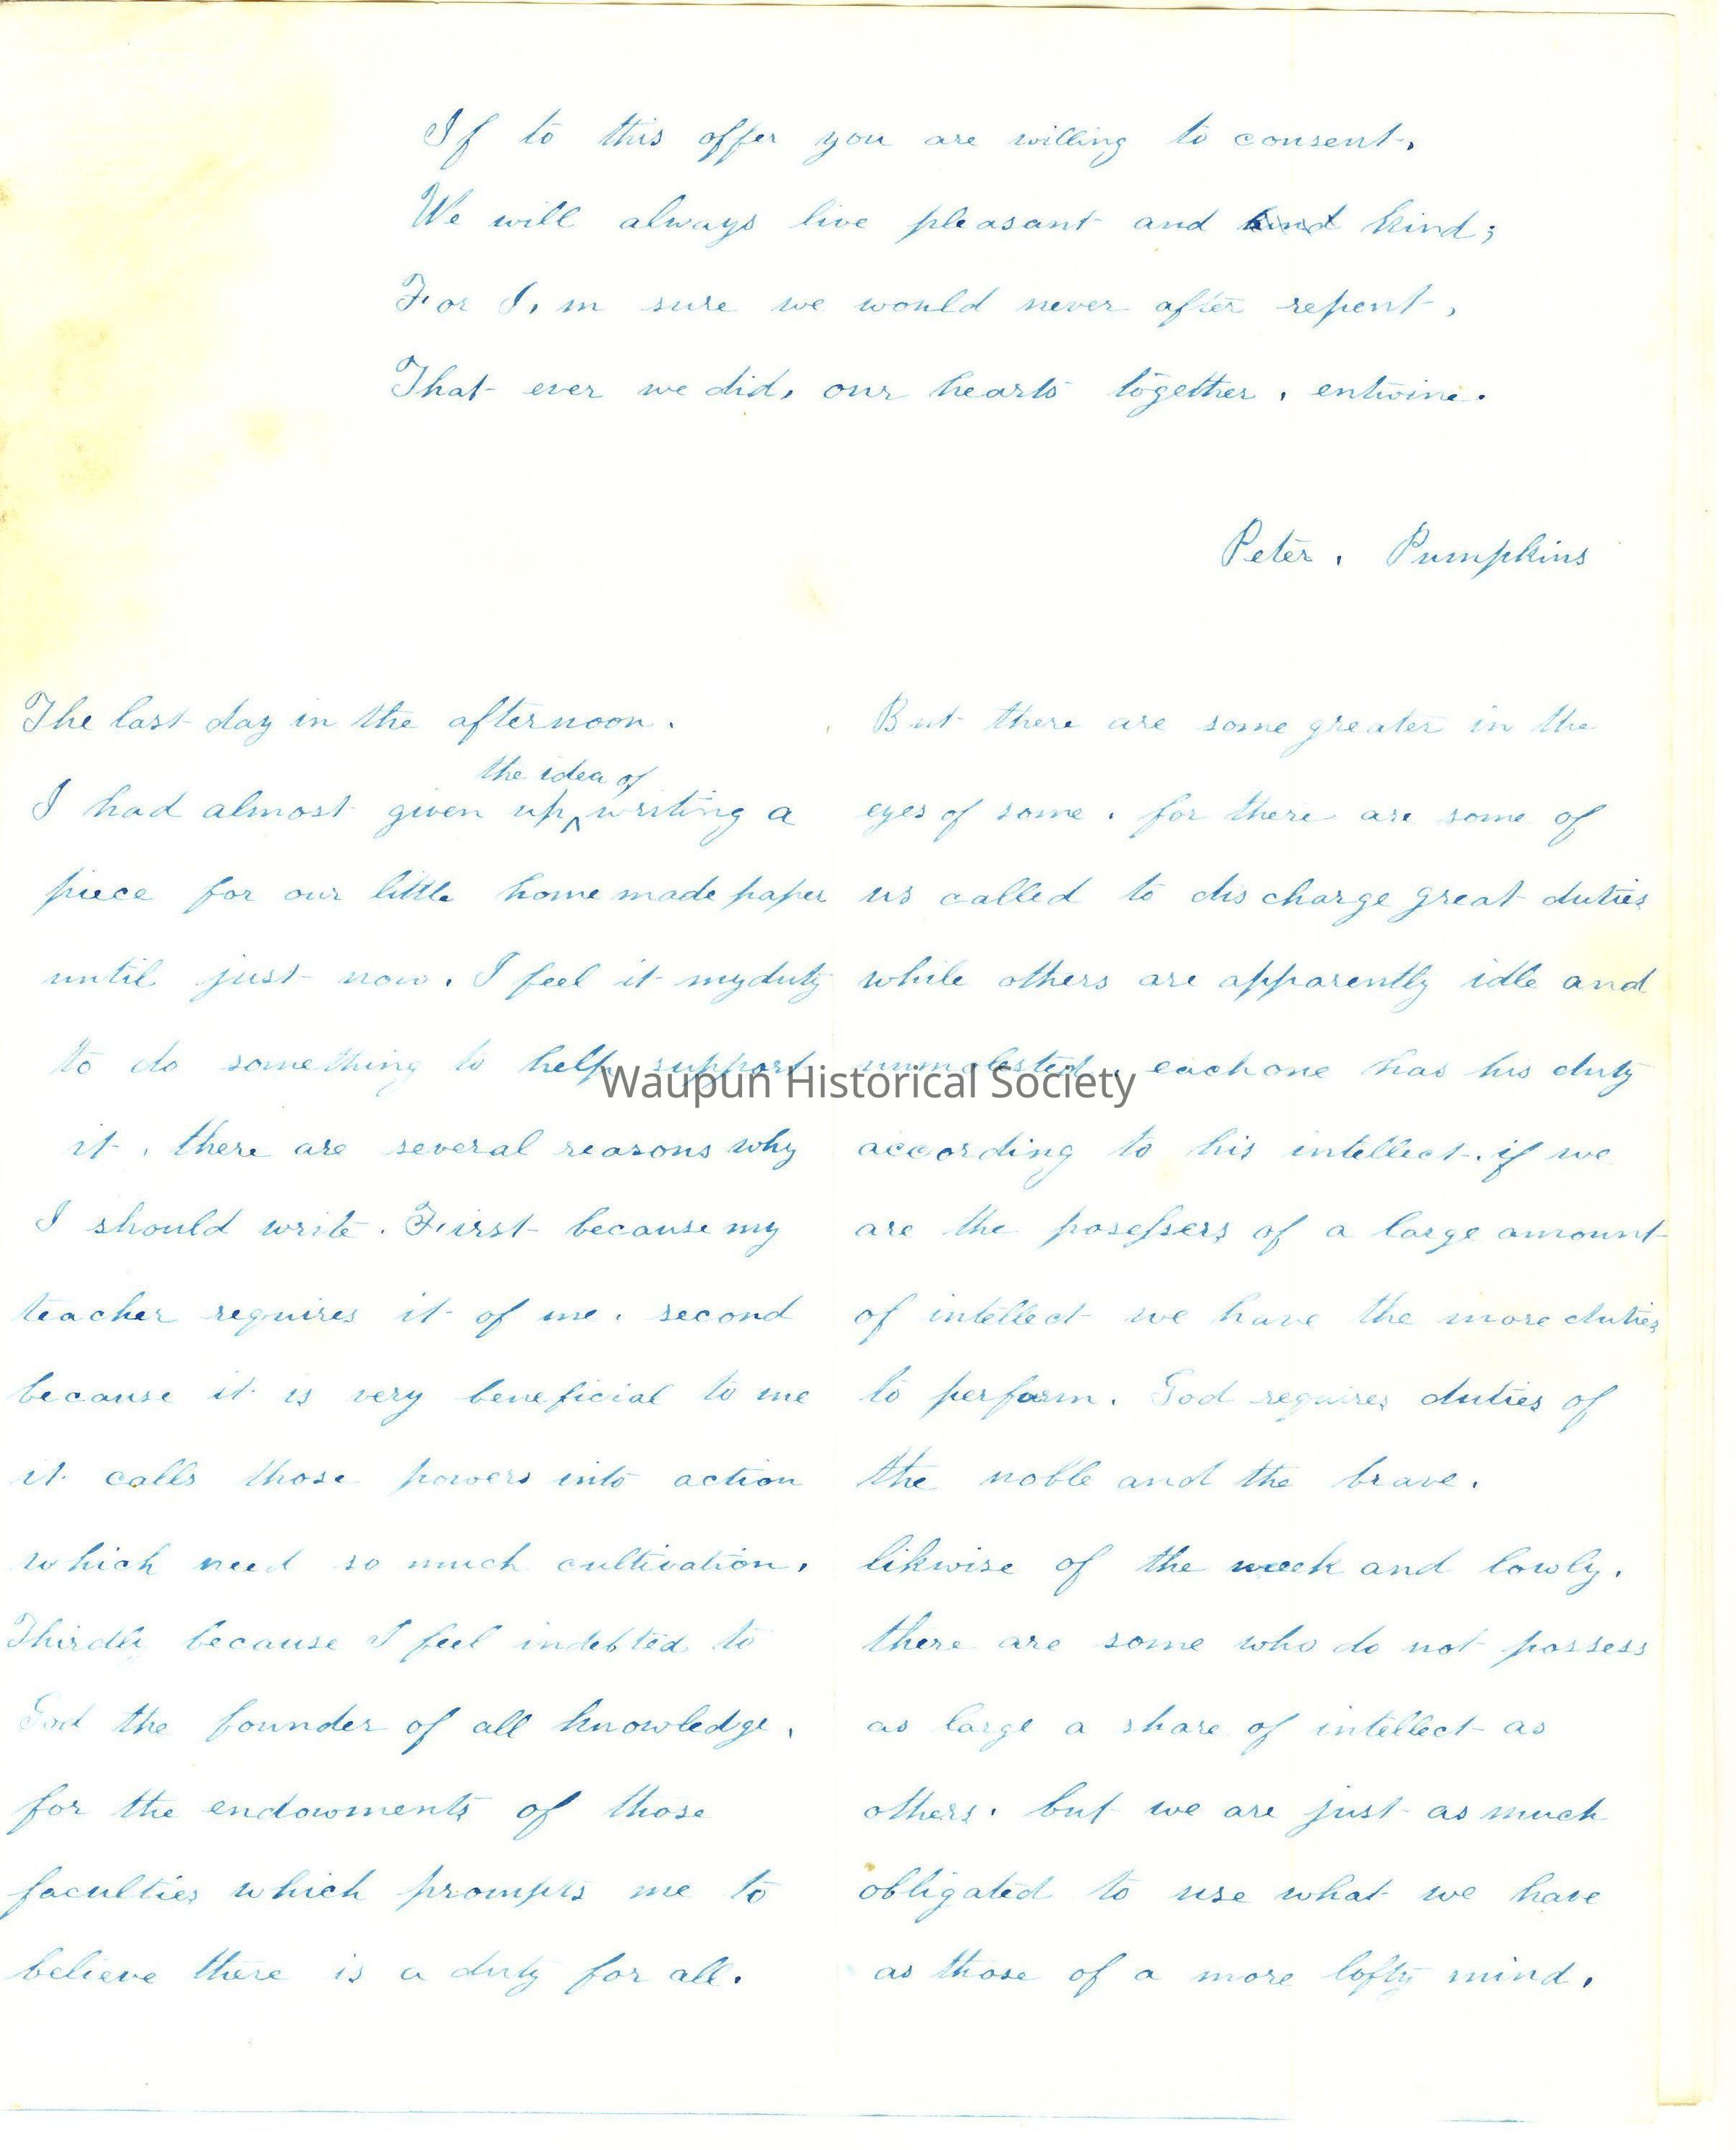 If to this offer you are willing to consent,
We will always live pleasant and kind kind;
For I,m sure we would never after repent,
That ever we did, our hearts together, entwine.
Peter, Pumpkins
The last day in the afternoon.
the idea of
I had almost given up ^ writing a
piece for our little home made paper
until just now. I feel it my duty
to do something to help support
it, there are several reasons why
I should write. First because my
teacher requires it of me, second
because it is very beneficial to me
it calls those powers into action
which need so much cultivation,
Thirdly because I feel indebted to
God the founder of all knowledge,
for the endowments of those
faculties which prompts me to
believe there is a duty for all.
But there are some greater in the
eyes of some, for there are some of
us called to dis charge great duties
while others are apparently idle and
unmolested, each one has his duty
according to his intellect, if we
are the posessers of a large amount
of intellect we have the more duties
to perform. God requires duties of
the noble and the brave.
likwise of the week and lowly.
there are some who do not possess
as large a share of intellect as
others, but we are just as much
obligated to use what we have
as those of a more lofty mind,
Waupun Historical Society